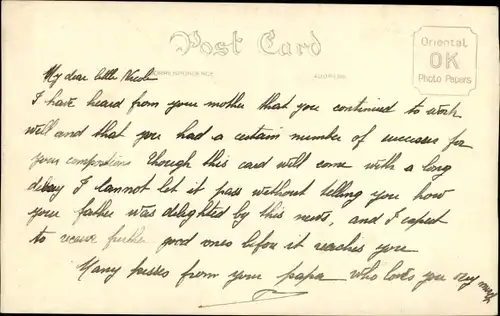 Post Card
CORRESPONDENCE
ADDRESS
Oriental
OK
Photo Papers
My dear little Nicole
I have heard from your mother that you continued to work
well and that you had a certain number of successes for
your compositions Though this card will come with a long
delay I cannot let it pass without telling you how
your father was delighted by this news, and I expect
to receive further good ones before it reaches you
Many kisses from your papa who loves you very much